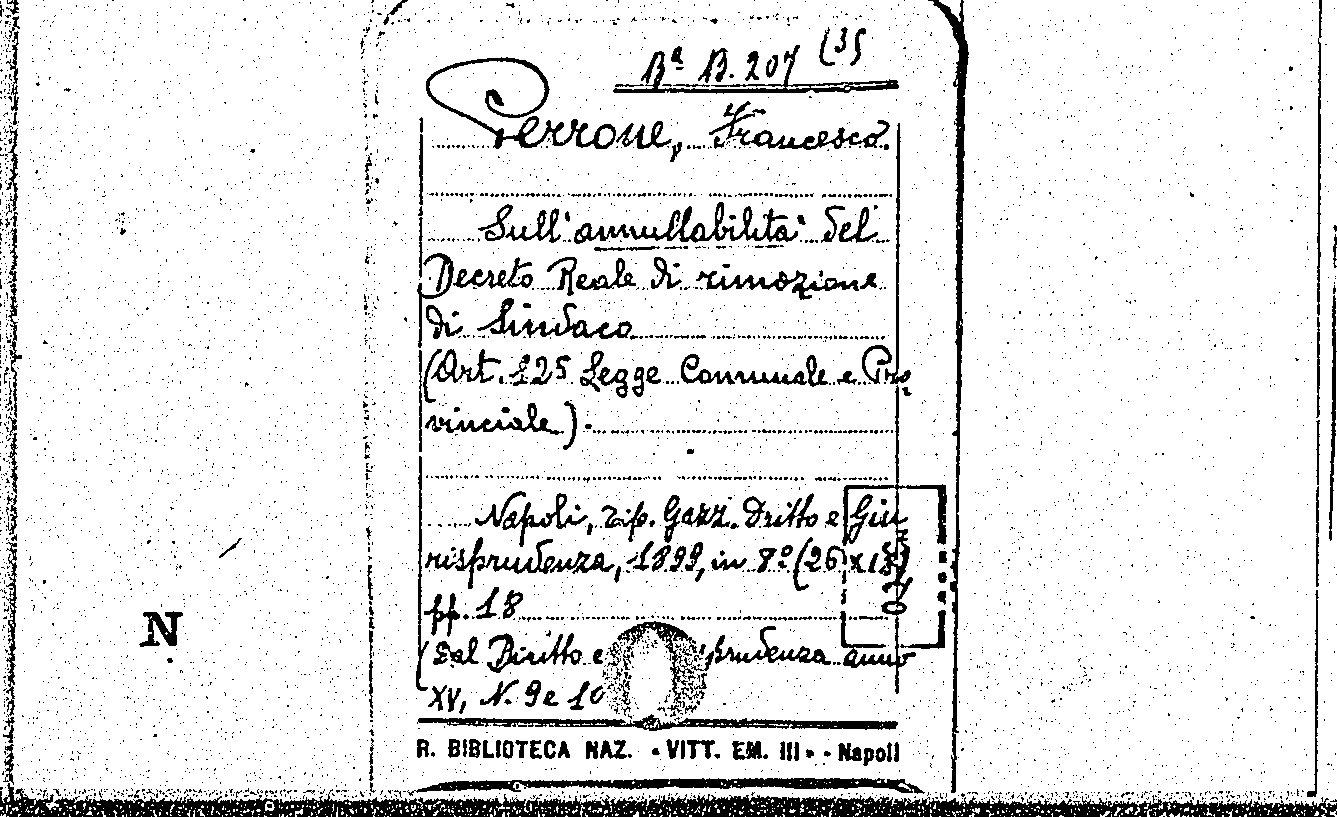 Bª B. 207 (35
Perrone, Francesco.
Sull'annullabilità del
Decreto Reale di rimozione
di Sindaco
(Art. 125 Legge Comunale e Pro-
vinciale).
Napoli, tip. Gazz. Dritto e Giu
risprudenza, 1899, in 8º (26 x 18)
pp. 18
(Dal Diritto e prudenza anno
XV, N. 9 e 10
N
R. BIBLIOTECA NAZ. «VITT. EM. III» - Napoli